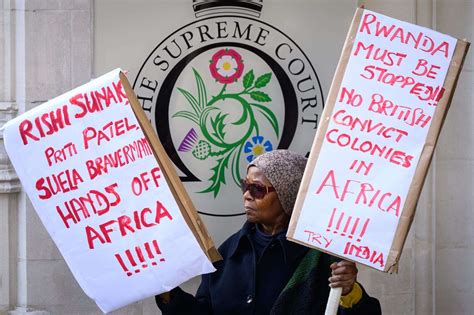 THE SUPREME COURT
RISHI SUNAK,
PRITI PATEL,
SUELA BRAVERMAN
HANDS OFF
AFRICA
!!!!!
RWANDA
MUST BE
STOPPED!!!
NO BRITISH
CONVICT
COLONIES
IN
AFRICA
!!!!!
TRY INDIA